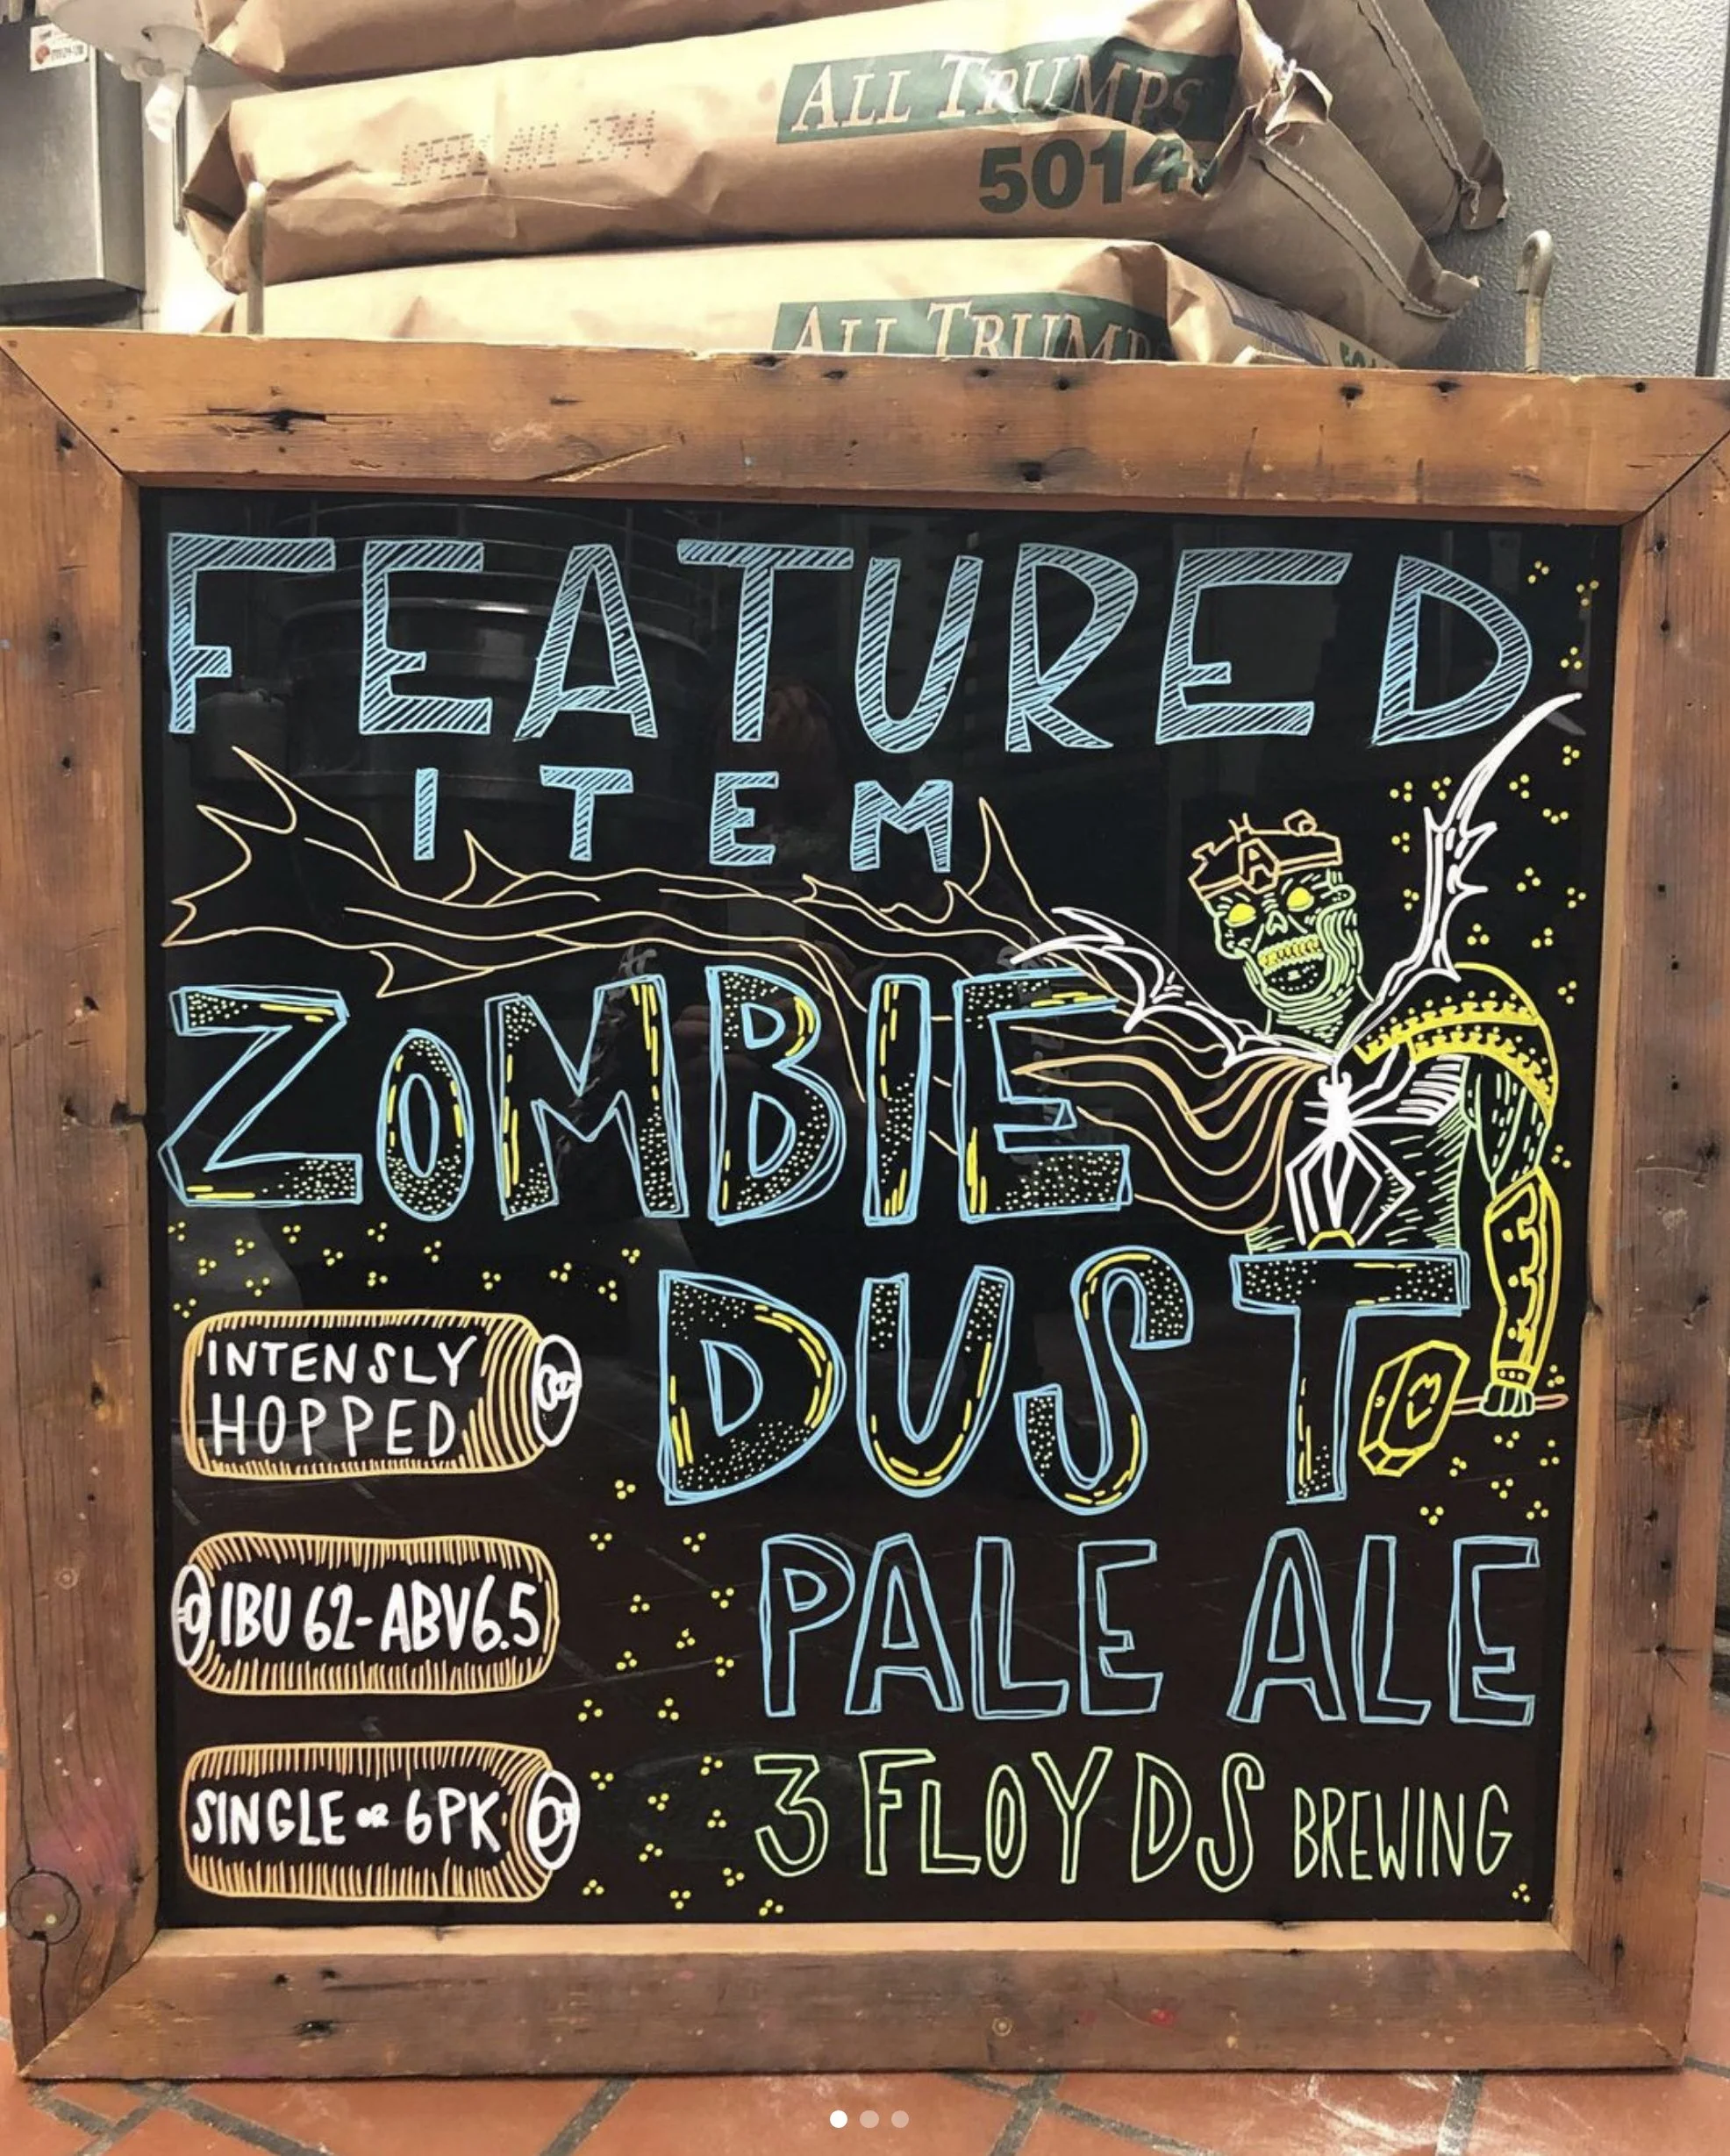 ALL TRUMPS
5014
ALL TRUMP
FEATURED
ITEM
A
ZOMBIE
DUST
INTENSLY
HOPPED
PALE ALE
IBU 62-ABV6.5
3 FLOYDS BREWING
SINGLE OR 6PK